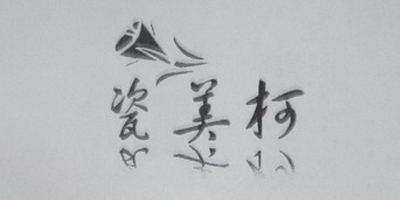 瓷美柯